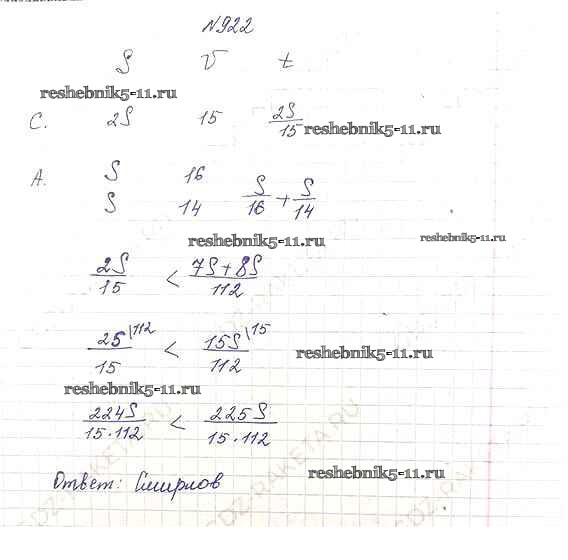 N922
S V t
reshebnik5-11.ru
С. 2S 15 2S/15 reshebnik5-11.ru
А. S 16
S 14 S/16 + S/14
reshebnik5-11.ru reshebnik5-11.ru
2S/15 < 7S+8S/112
2S\112/15 < 15S\15/112 reshebnik5-11.ru
reshebnik5-11.ru
224S/15·112 < 225S/15·112
Ответ: Смирнов reshebnik5-11.ru